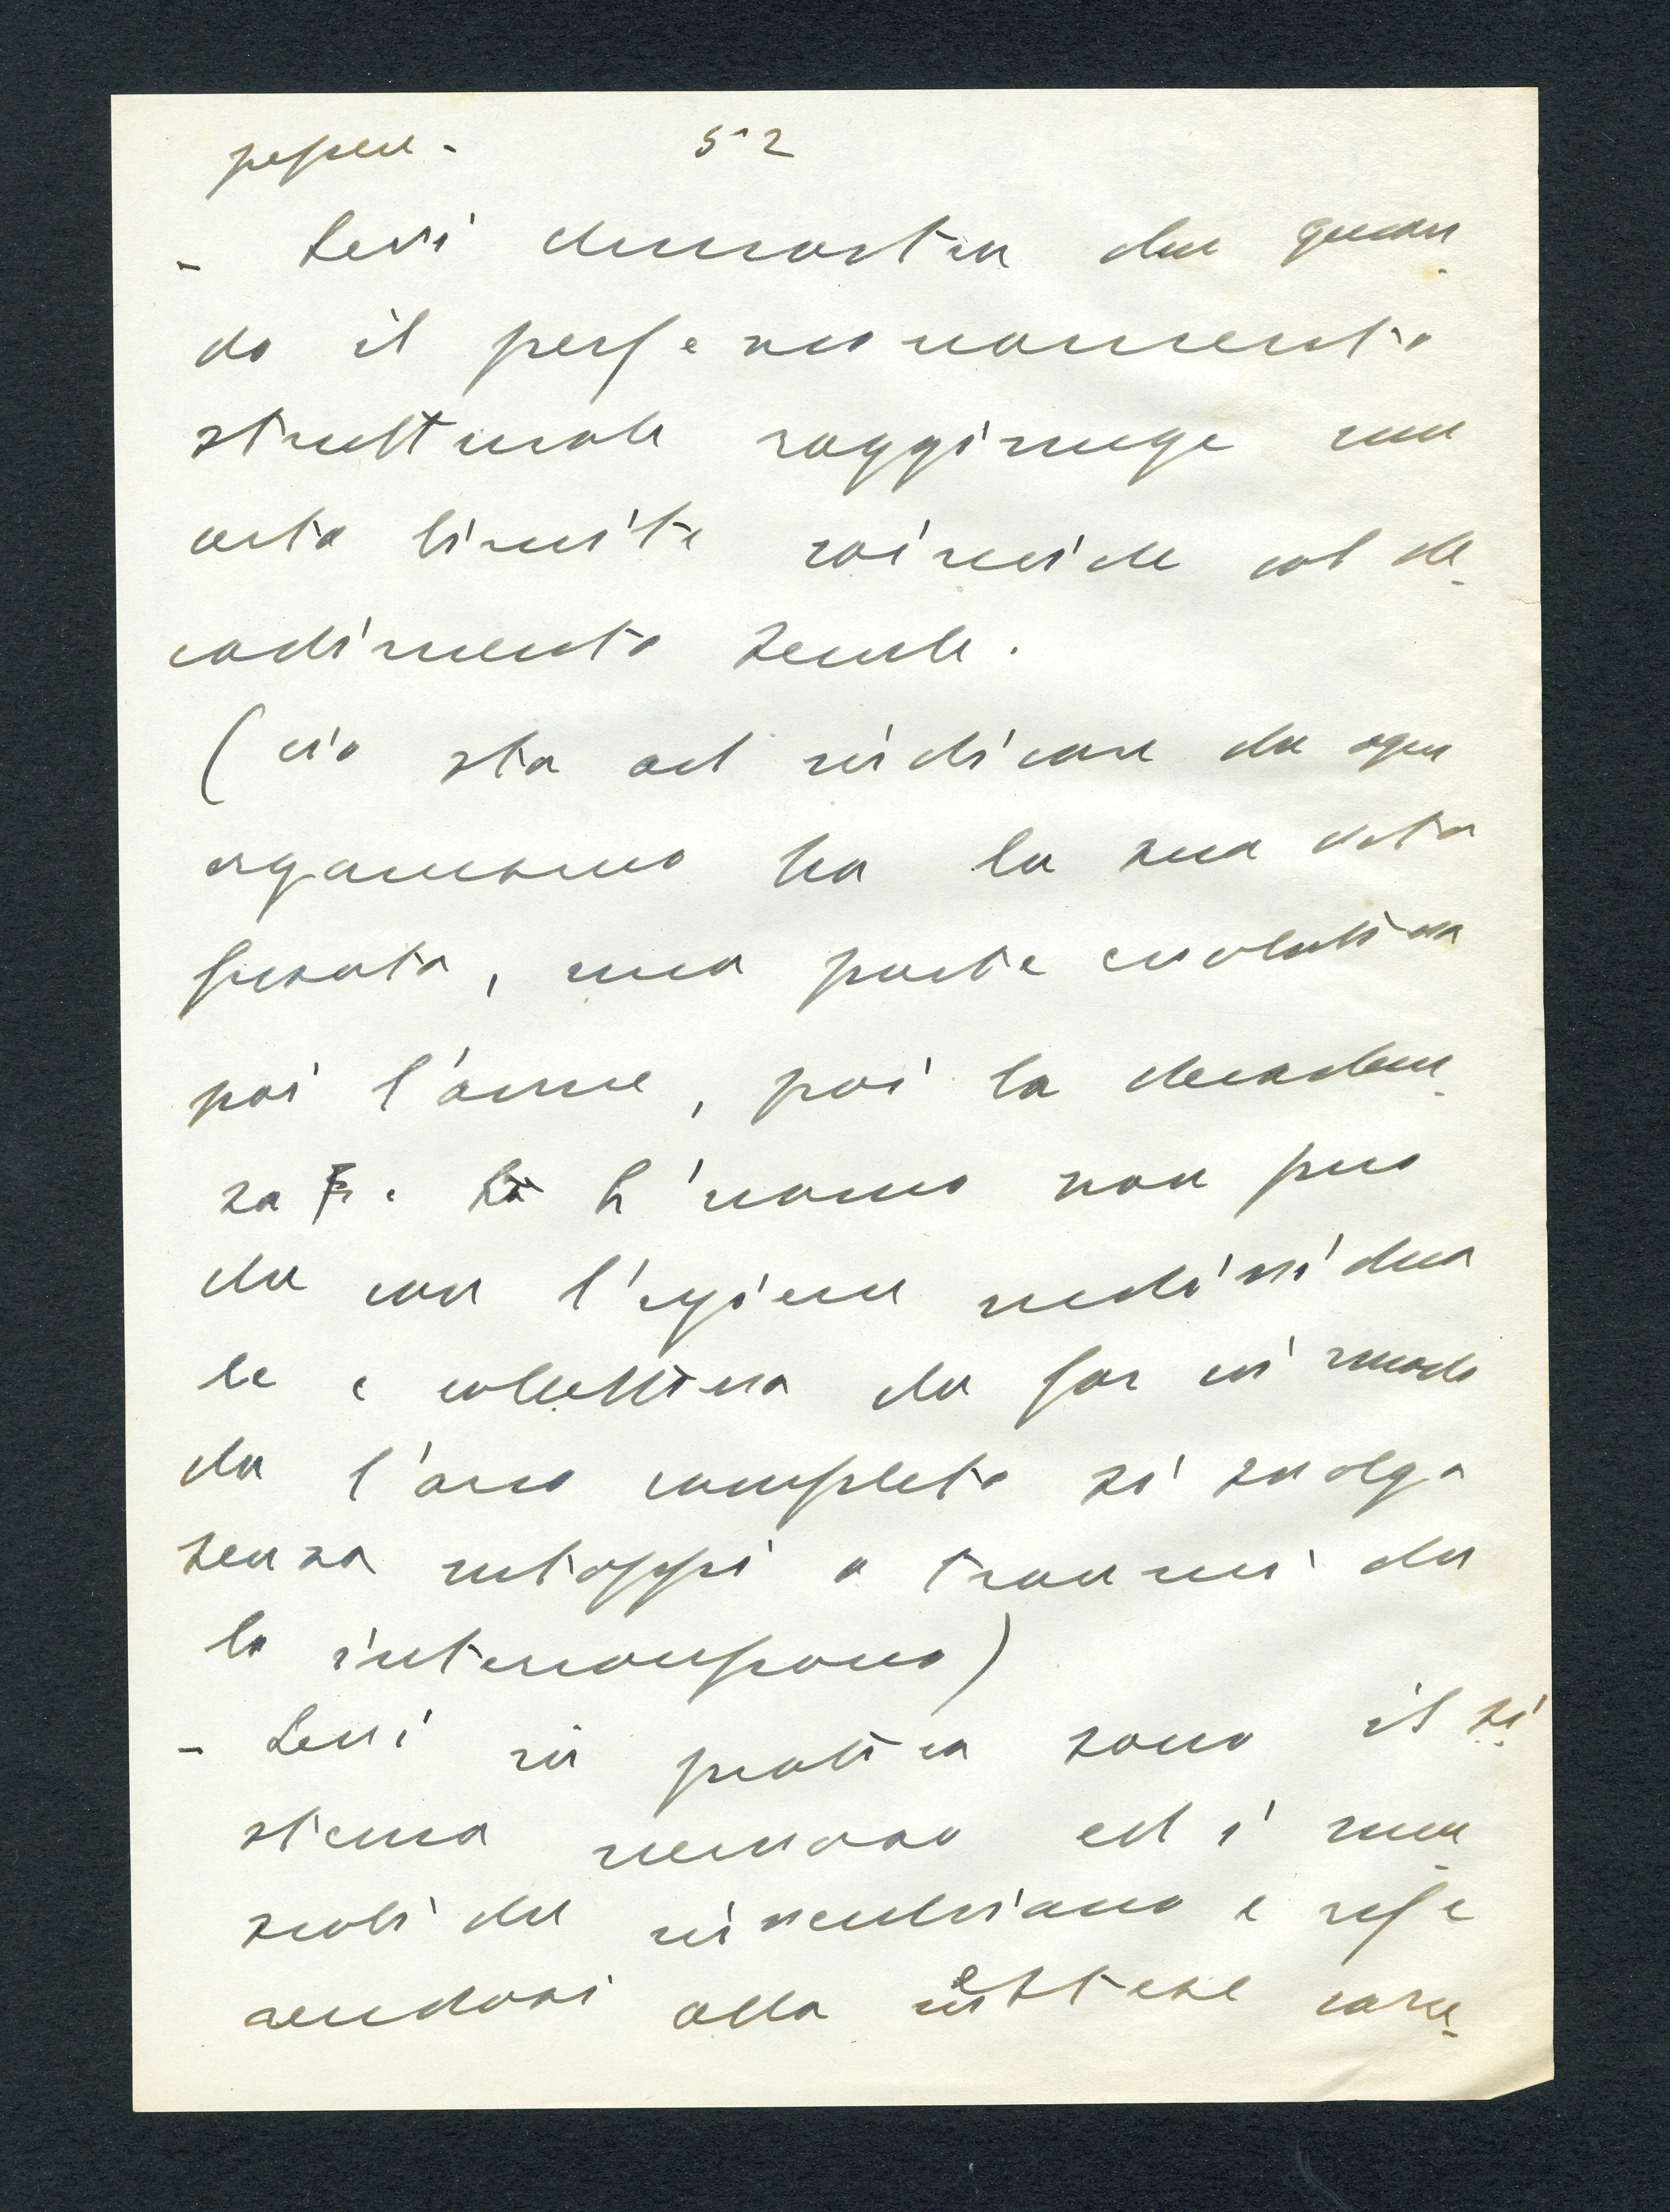 52
- Levi dimostra che quan-
do il perfezionamento
strutturale raggiunge un
certo limite coincide col de-
cadimento senile.
(ciò sta ad indicare che ogni
organismo ha la sua data
fissata, una parte evolutiva
poi l'acme, poi la decaden-
za. L'uomo non può
che con l'igiene individua
le e collettiva che far in modo
che l'arco completo si svolga
senza intoppi o traumi che
lo interrompono)
- Levi in pratica sono il si-
stema nervoso ed i mu-
scoli che invecchiano e rife
rendosi alla